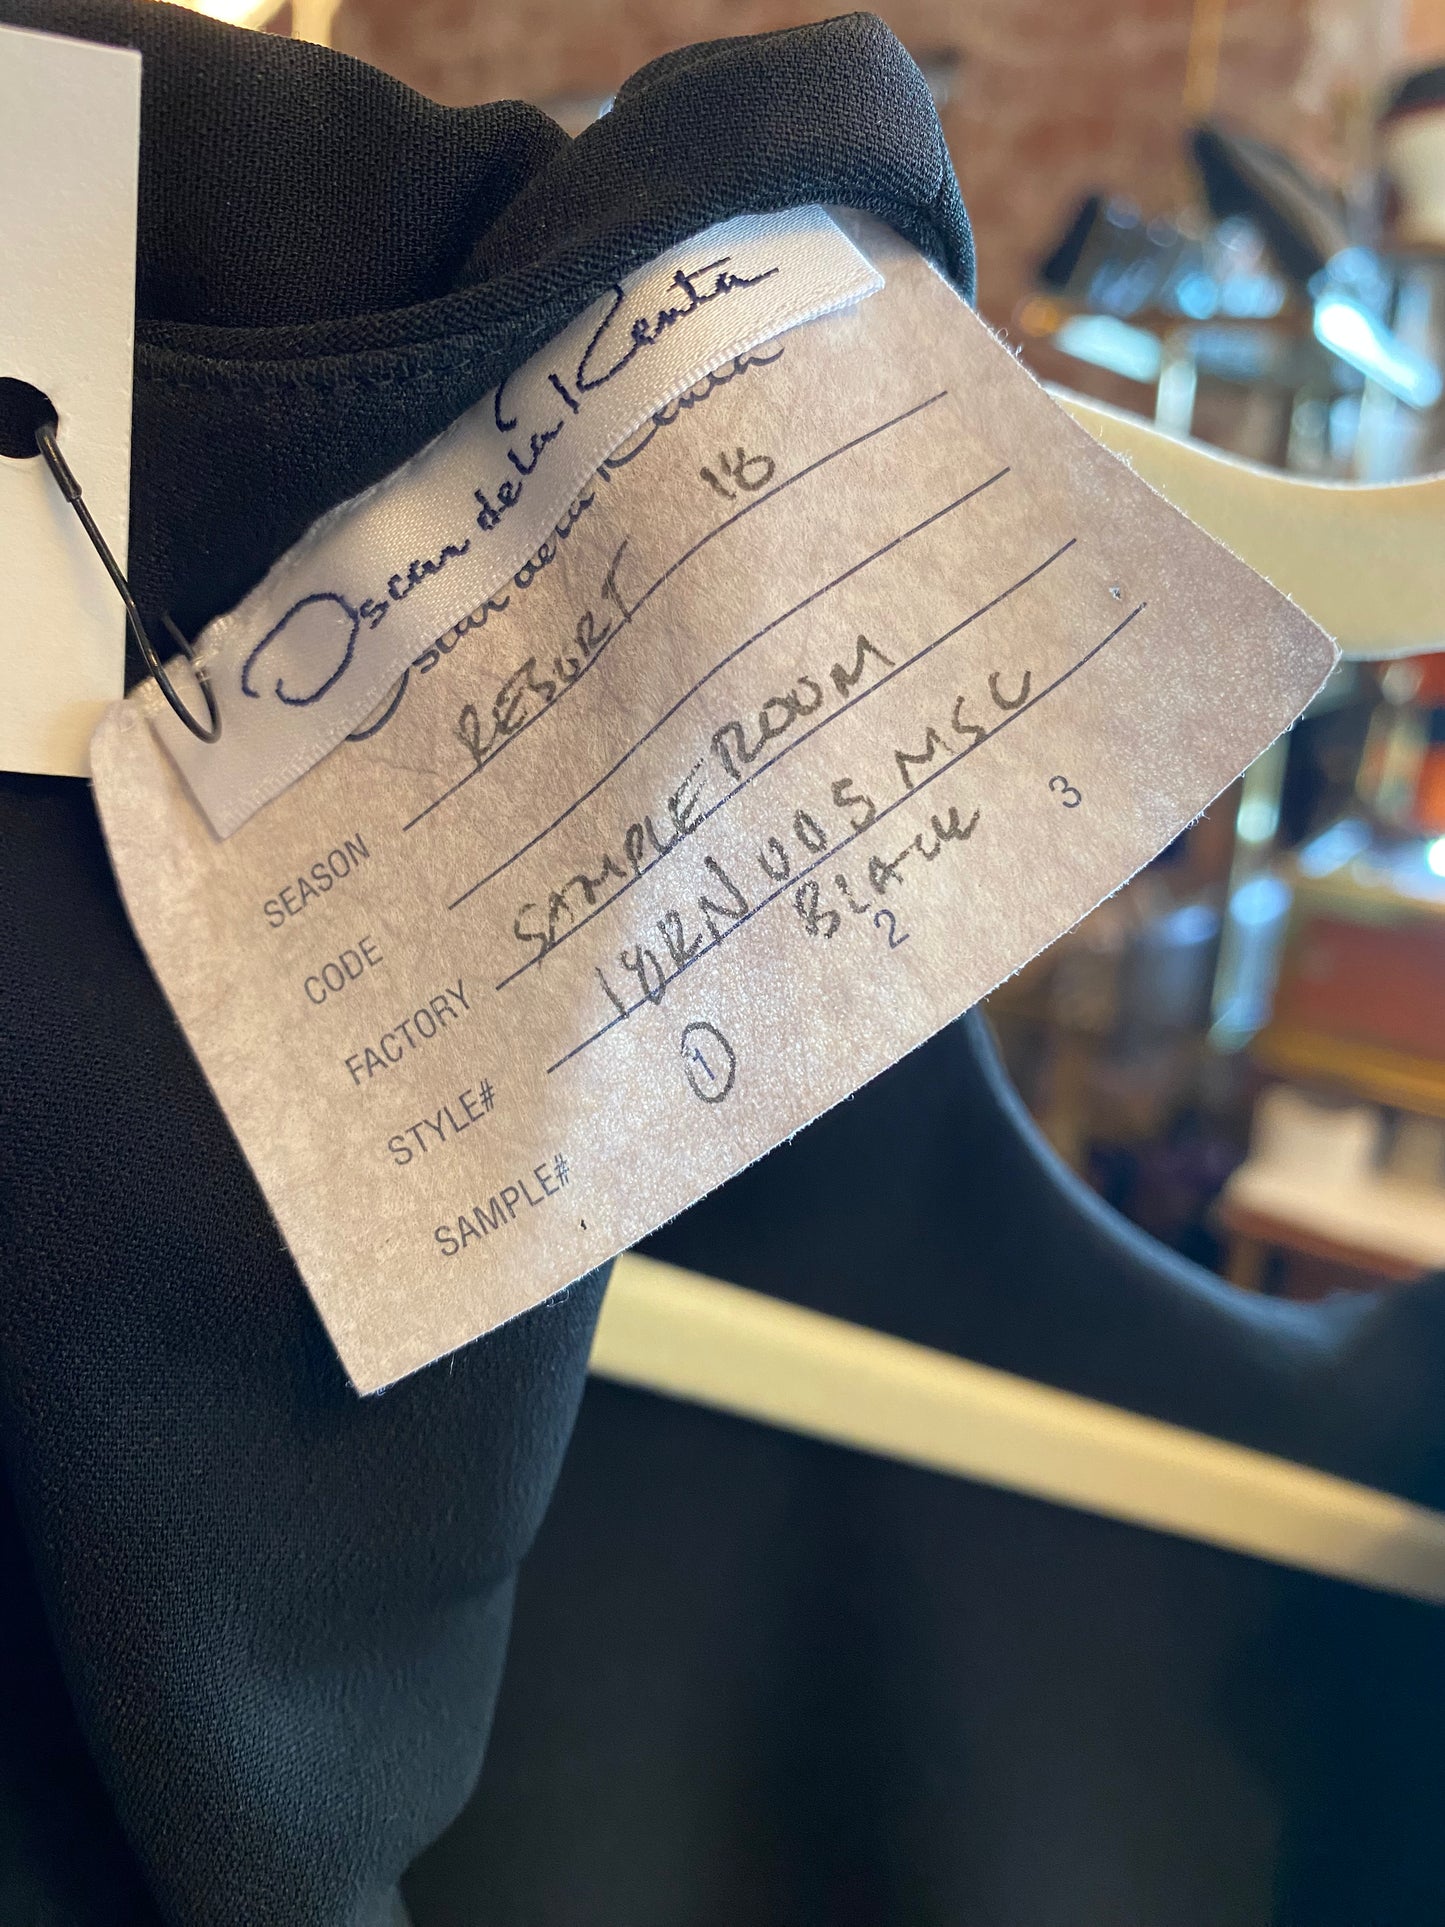 Oscar de la Renta
Oscar de la Renta
SEASON RESORT 18
CODE
FACTORY SAMPLE ROOM
STYLE# 18RN005MSC
BLACK
SAMPLE# 1 2 3